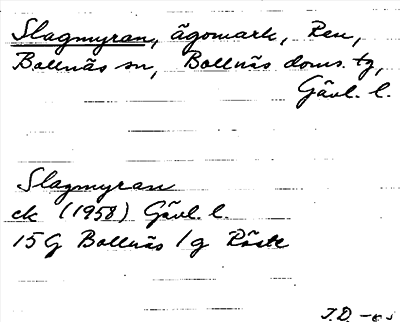 Slagmyran, ägomark, Ren,
Bollnäs sn, Bollnäs doms. tg,
Gävl. l.
Slagmyran
ek (1958) Gävl. l.
15G Bollnäs 1g Röste
J.D.